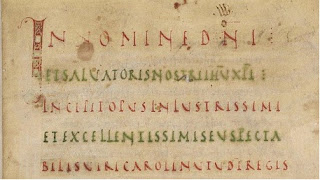 IN NOMINE DNI :
ET SALUATORIS NOSTRI IHU XPI :
INCIPIT OPUS INLUSTRISSIMI
ET EXCELLENTISSIMI SEU SPECTA
BILIS UIRI CAROLI NUTU DI REGIS